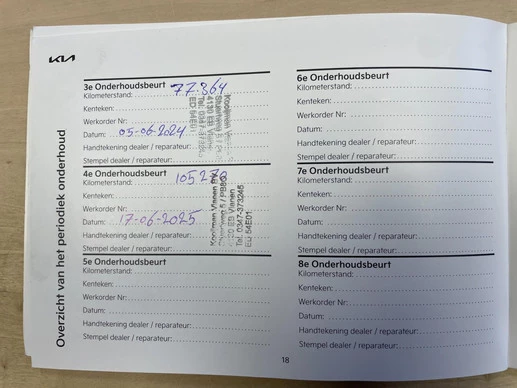 KIA
Overzicht van het periodiek onderhoud
3e Onderhoudsbeurt 77.364
Kilometerstand:
Kenteken:
Werkorder Nr:
Datum: 05-06-2024
Handtekening dealer / reparateur:
Stempel dealer / reparateur:
4e Onderhoudsbeurt
Kilometerstand:
Kenteken:
Werkorder Nr:
Datum: 17-06-2025
Handtekening dealer / reparateur:
Stempel dealer / reparateur:
Kooijman Vianen
Tel. 0347-373245
ED 54E01
5e Onderhoudsbeurt
Kilometerstand:
Kenteken:
Werkorder Nr:
Datum:
Handtekening dealer / reparateur:
Stempel dealer / reparateur:
6e Onderhoudsbeurt
Kilometerstand:
Kenteken:
Werkorder Nr:
Datum:
Handtekening dealer / reparateur:
Stempel dealer / reparateur:
7e Onderhoudsbeurt
Kilometerstand:
Kenteken:
Werkorder Nr:
Datum:
Handtekening dealer / reparateur:
Stempel dealer / reparateur:
8e Onderhoudsbeurt
Kilometerstand:
Kenteken:
Werkorder Nr:
Datum:
Handtekening dealer / reparateur:
Stempel dealer / reparateur:
18